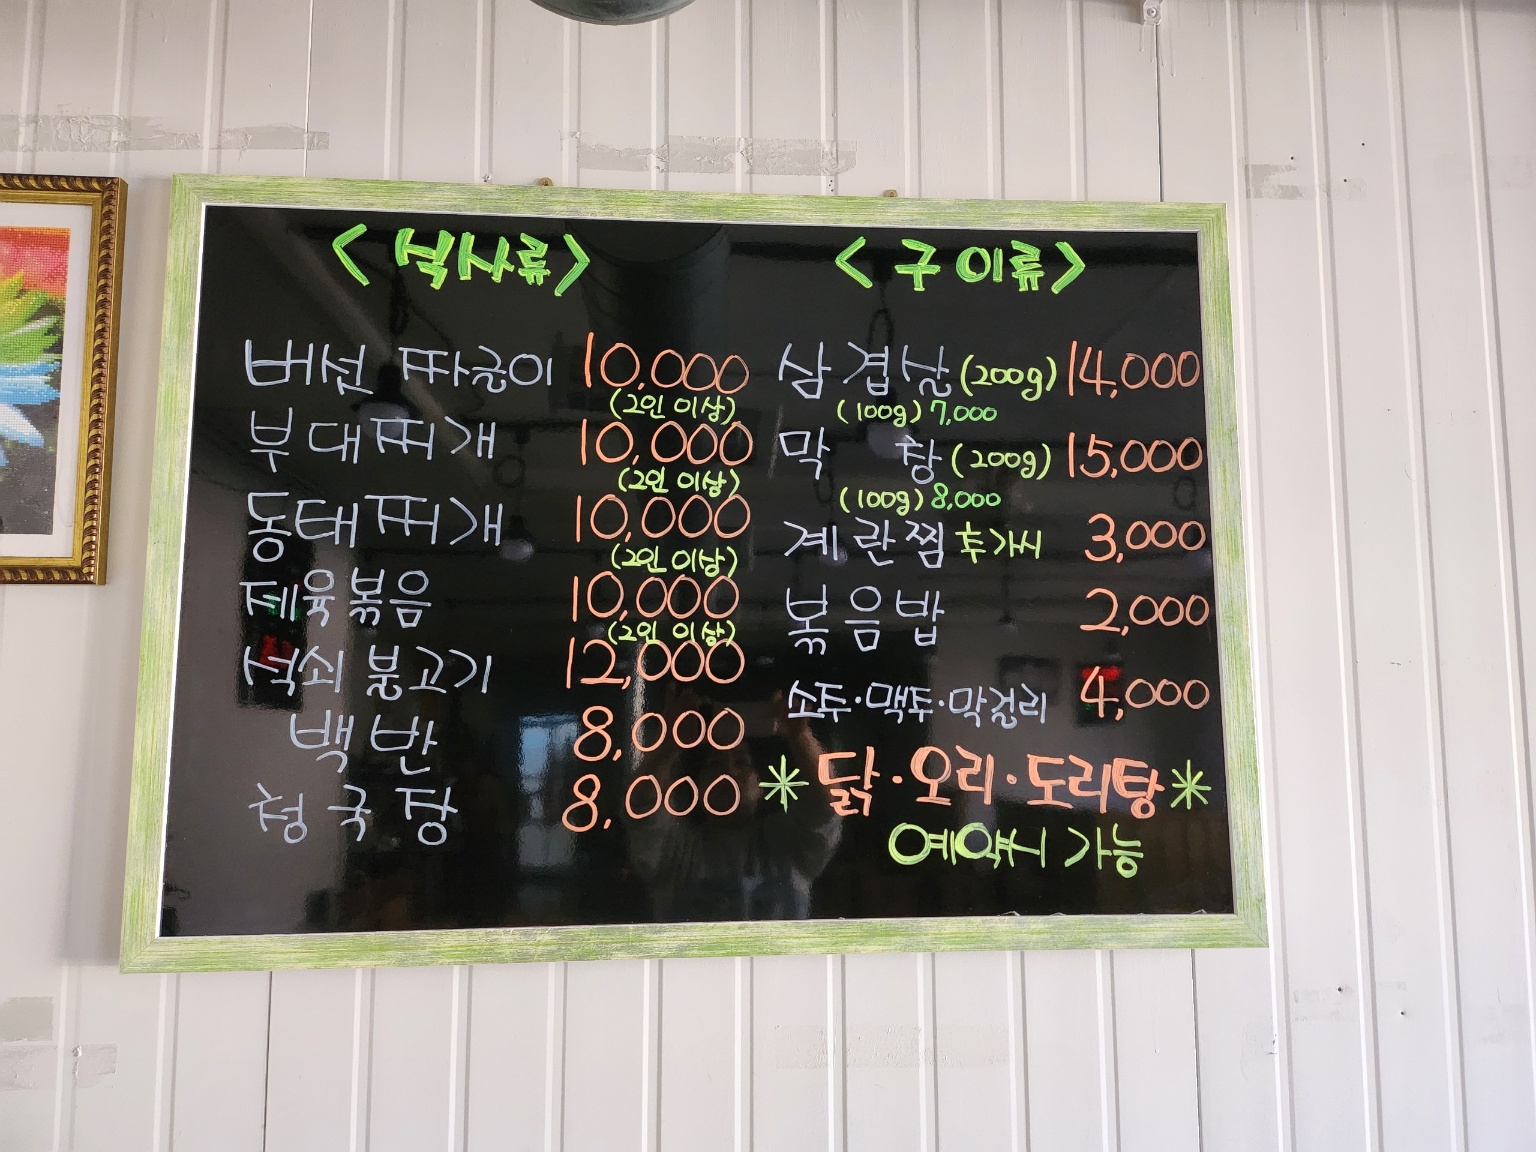 <식사류>
버섯 짜글이 10,000
(2인 이상)
부대찌개 10,000
(2인 이상)
동태찌개 10,000
(2인 이상)
제육볶음 10,000
(2인 이상)
석쇠 불고기 12,000
백반 8,000
청국장 8,000
<구이류>
삼겹살 (200g) 14,000
(100g) 7,000
막창 (200g) 15,000
(100g) 8,000
계란찜 추가시 3,000
볶음밥 2,000
소주·맥주·막걸리 4,000
* 닭·오리·도리탕 *
예약시 가능